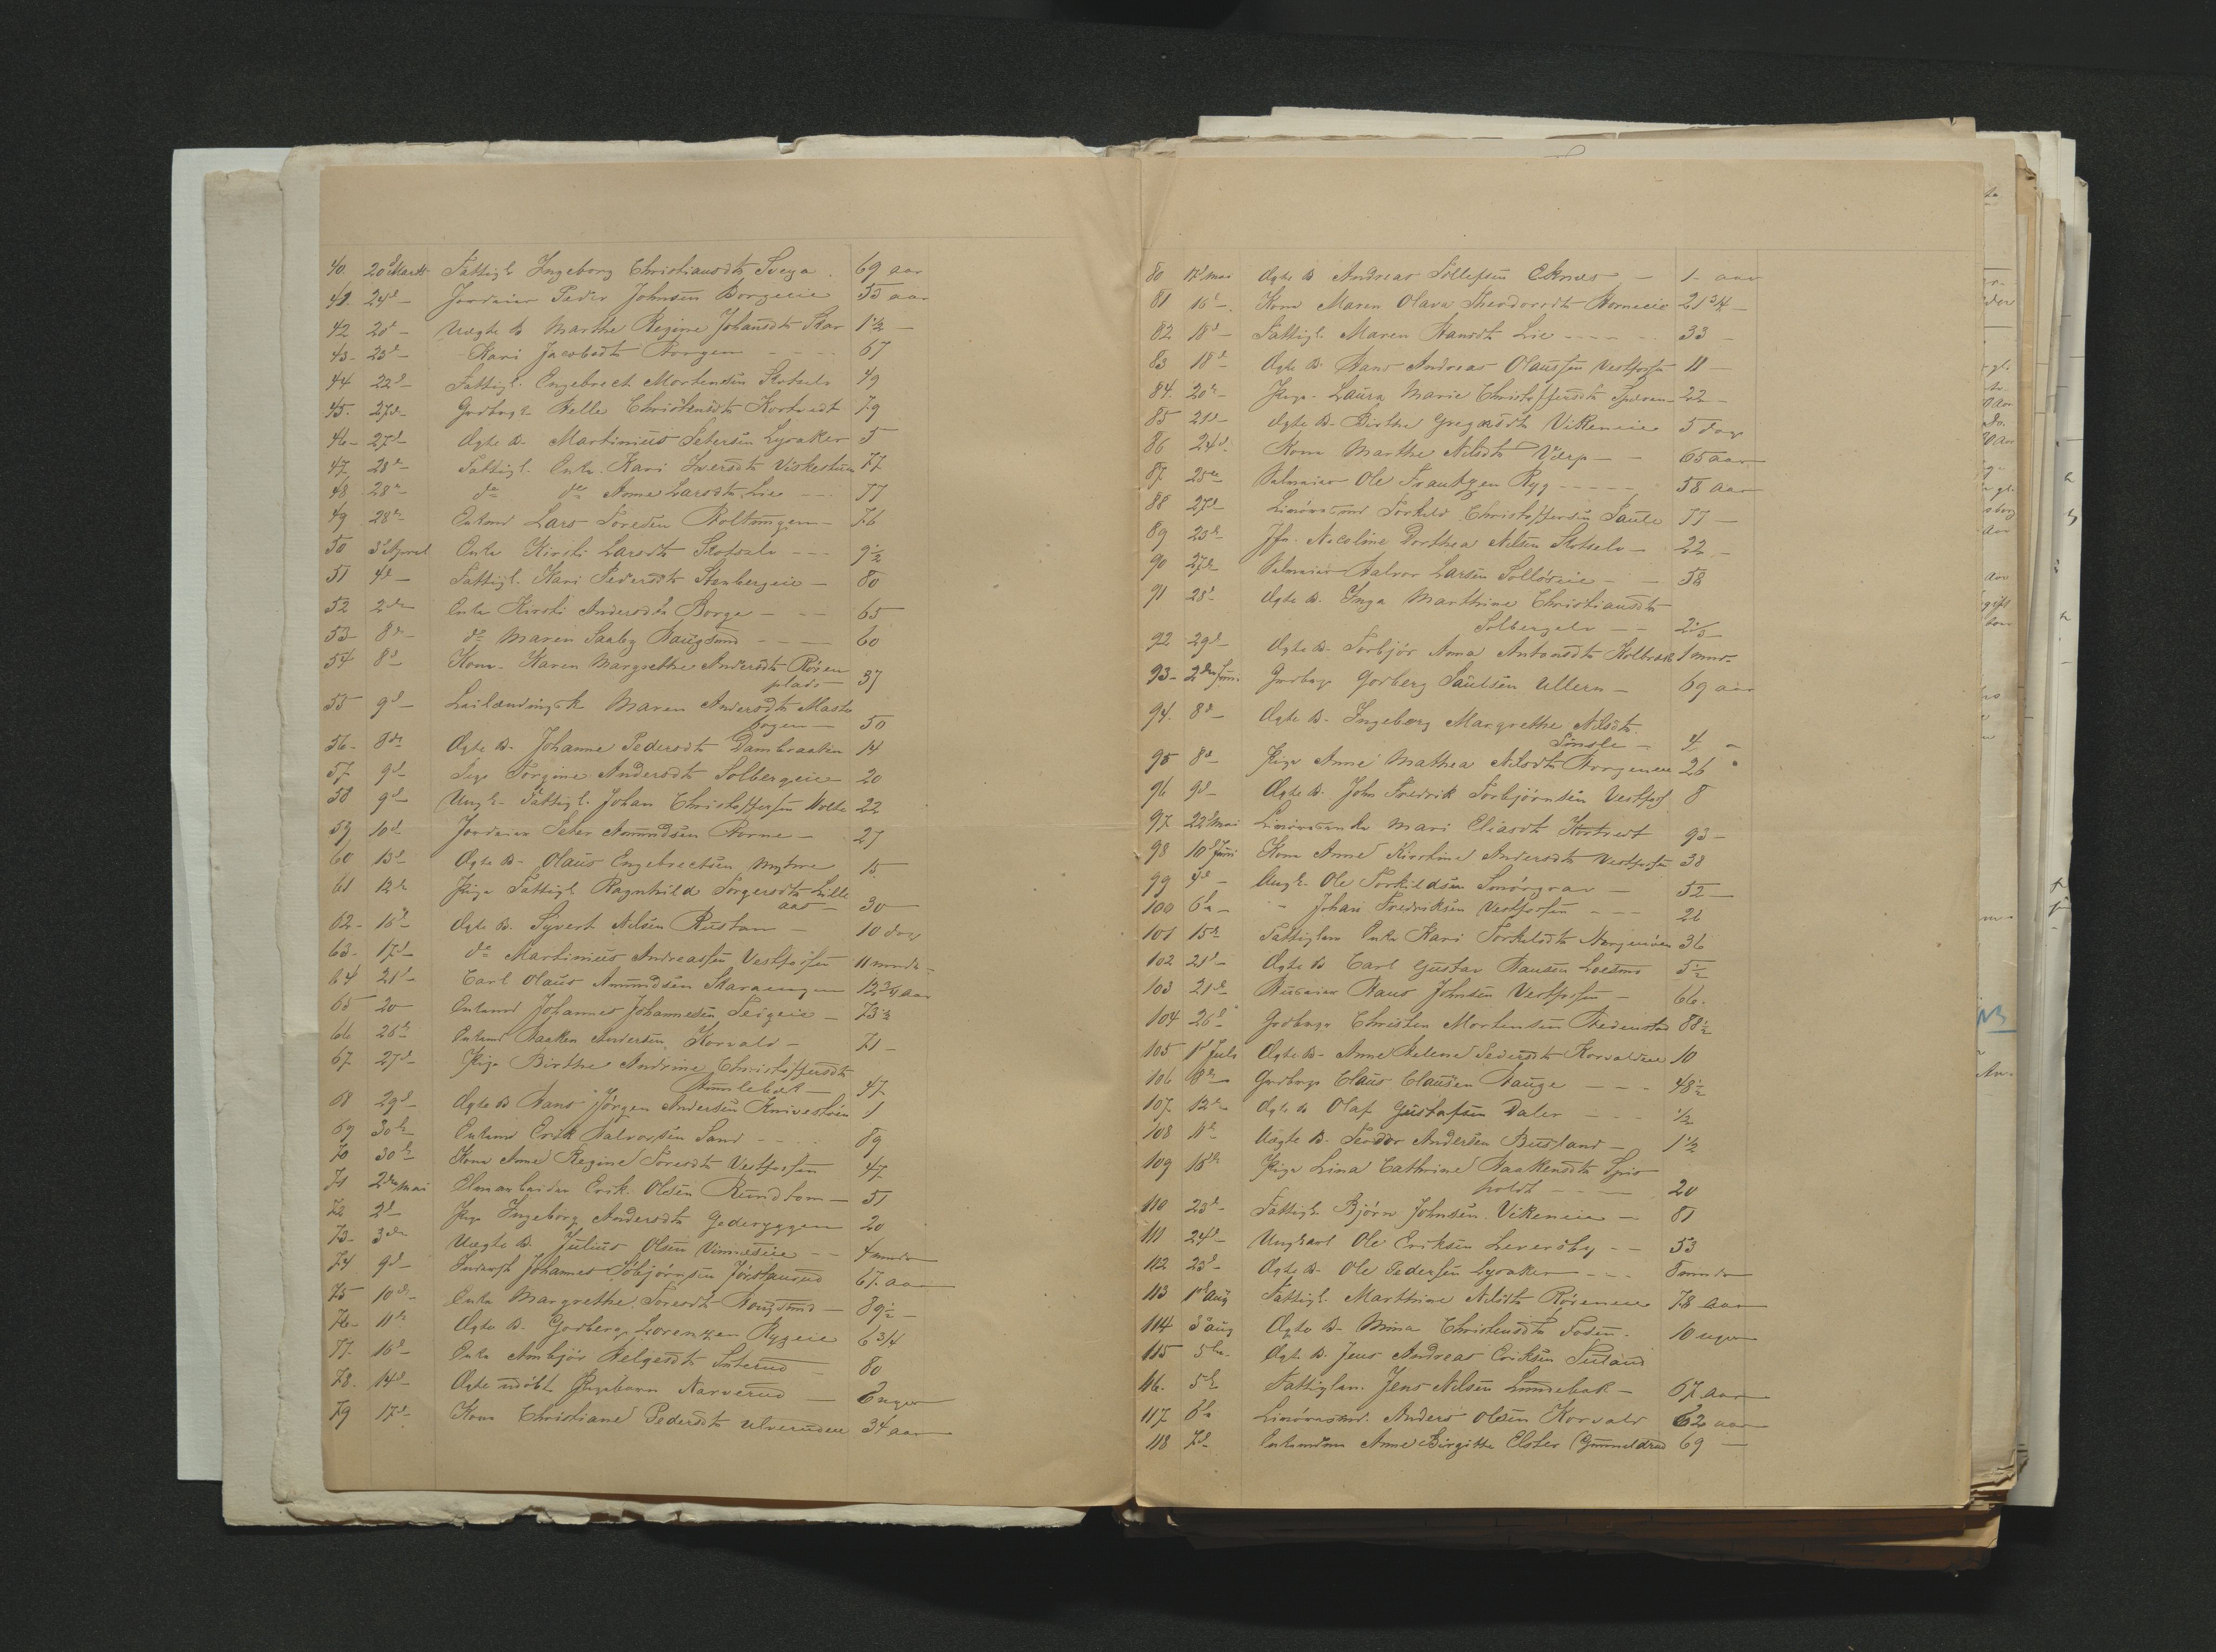 40. 20d Marts Fattigl. Ingeborg Christiansdtr Svega. 69 aar
41. 24d – Jordeier Peder Johnsen Borgeeie 55 aar
42 20d – Uægte B Marthe Regine Johansdtr Skar 1½ –
43 – 23d – Kari Jacobsdtr Horgen - - - 67
44 22d – Fattigl. Engebrect Mortensen Skotselv 49
45. 27d – Gaardbrug. Helle Christensdtr Hortvedt 79
46 – 27d – Ægte B. Martinius Petersen Lyraker 5
47 28d – Fattigl. Enke Kari Iversdtr 77
48 28d – do do Anne Larsdtr Lie - - - 77
49 28d – Enkmd Lars Toresen Holtungen – 76
50 3d April Enke Kirsti Larsdtr Skotselv - - - 9½
51 4d – Fattigl. Kari Pedersdtr Stenbergeie – 80
52 2den Enke Kirsti Andersdtr Borge – - - 65
53 – 8d – do Maren Saaby Haugsund – - - 60
54 8d Kone Karen Margrethe Andersdtr Røren
plads – 37
55 9d – Maren Andersdtr Maste
bogen – 50
56 – 8de Ægte B. Johanne Pedersdtr Dambraaten 14
57 9d – Pige Torgine Andersdtr Solbergeie 20
58 9d – Ungk. Fattigl. Johan Christoffersen Holte 22
59 10d Jordeier Peter Amundsen Horne – 27
60 13d – Ægte B – Olaus Engebrectsen Myhre 15
61 12d Pige Fattigl. Ragnhild Torgersdtr Lille
aas – 30
62 – 16d Ægte B. Syvert Nilsen Rustan – 10 dage
63 – 17d – do Martinius Andreassen Vestfossen 11 mndr.
64 21d – Carl Olaus Amundsen Skarangen 12¾ aar
65 20 – Enkmd Johannes Johannesen Teigeie – 73½
66 26d Enkmd Haaken Andersen Korvald – 71 –
67 27d – Pige Birthe Andrine Christoffersdtr
Hunlebek – 47
68 29d – Ægte B Hans Jørgen Andersen Knivestøen 1
69 30d Enkmd Erik Halvorsen Sand - - - - 89
70 30d Kone Anne Regine Toresdtr Vestfossen 47
71 2den Mai Almuarbeider Erik Olsen Rundtom – 51
72 2d – Pige Ingeborg Andersdtr Gederyggen 20
73 – 3de Uægte B. Julius Olsen Vinneseie – - 4 mndr
74 9d – Inderst Johannes Tobjørnsen Jørstaurud 67 aar
75 10d – Enke Margrethe Toresdtr Haugsund – 89½ –
76 – 11d Ægte B. Godberg Lorenzen Rygeie 6¾
77. 16d Enke Ambjør Helgesdtr Interud – 80
78. 14d – Ægte udøbt Pigebarn Narverud – 3 uger
79 17d – Kone Christiane Pedersdtr Ulverudeie 34 aar
80 17d Mai Ægte B Andreas Tollefsen Eknes – 1 – aar
81 16d – Kone Maren Olava Theodorsdtr Horneeie 21¾ –
82 18d – Fattigl. Maren Hansdtr Lie - - - - 33 –
83 18d – Ægte B. Hans Andreas Olaussen Vestfossen 11 –
84. 20d – Pige – Laura Marie Christoffersdtr 22 –
85 21d – Ægte B. Birthe Gregersdtr Vikeneie 5 dage
86 24d – Kone Marthe Nilsdtr Verp – - 65 aar
87 25de Selveier Ole Frantzen Ryg - - - - - 58 aar
88 27d – Torkild Christoffersen Saule 77 –
89 23d – Jfr. Nicoline Dorthea Nilsen Skotselv – 22 –
90 27de Selveier Halvor Larsen Solløseie – - 58
91 28d – Ægte B. Inga Marthine Christiansdtr
Solbergelv – - 2⅓
92 29d – Ægte B. Torbjør Anna Antonsdtr Holtvedt 1 mnd.
93 – 2den Juni Gaardbrug. Gorberg Paulsen Ullern – 69 aar
94. 8d – Ægte B. Ingeborg Margrethe Nilsdtr.
Semsle – 4 –
95 8d – Pige Anne Mathea Nilsdtr Horgeneie 26 "
96 9d – Ægte B. John Fredrik Torbjørnsen Vestfoss 8
97. 22d Mai Mari Eliasdtr Hortvedt 93 –
98 10d Juni Kone Anne Kirstine Andersdtr Vestfossen 38
99 4d – Ungk. Ole Torkildsen Smørgrav – 52 –
100 6te – – Johan Fredriksen Vestfossen - - - 26
101 15de Fattiglem Enke Kari Torkildsdtr 36
102 21d – Ægte B Carl Gustav Hansen Loesmo 5½
103 21de Huseier Hans Johnsen Vestfossen – 66.
104 26d Gaardbrug. Christen Mortensen Hedenstad 88½
105 1d Juli Ægte B – Anne Helene Pedersdtr Korvaldeie 10
106 8de Gaardbrug. Claus Clausen Hauge – - - 48½
107. 12te Ægte B Olaf Gustafsen Daler - - - ½
108 11d Uægte B. Teodor Andersen Busland – 1½
109 15de Pige Lina Cathrine Haakensdtr Spis
holdt – - - 20
110 23d – Fattigl. Bjørn Johnsen Vikeneie – 81
111 24d – Ungkarl Ole Eriksen Leversby – - 53
112 23d – Ægte B. Ole Pedersen Lyraker – - - 8 mndr
113 1d Aug Fattigl. Marthine Nilsdtr Røreneie 78 aar
114 3d Aug Ægte B – Mina Christensdtr Foden – 10 uger
115 5te – Ægte B. Jens Andreas Eriksen Ruland
116. 5te Fattiglem. Jens Nilsen Lundebak – 67 aar
117 6te Anders Olsen Korvald 62 aar
118 7d Enkemadam Anne Birgitte Elster (Gunneldrud 69 –